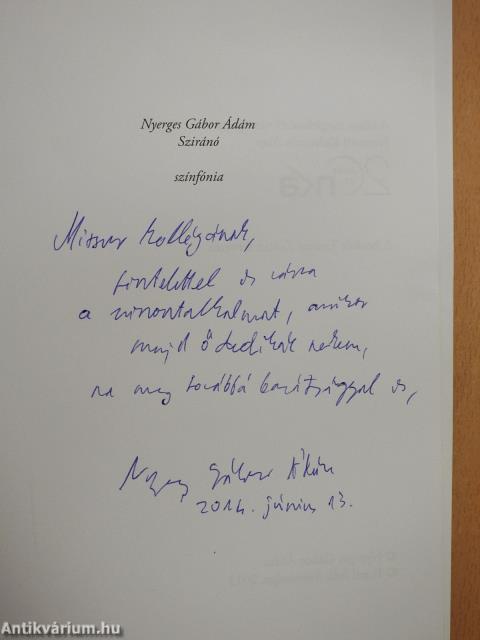 Nyerges Gábor Ádám
Sziránó
színfónia
Misur kollégának,
tisztelettel és várva
a viszontalkalmat, amikor
majd ő dedikál nekem,
na meg továbbá barátsággal is,
Nyerges Gábor Ádám
2014. június 13.
Antikvárium.hu